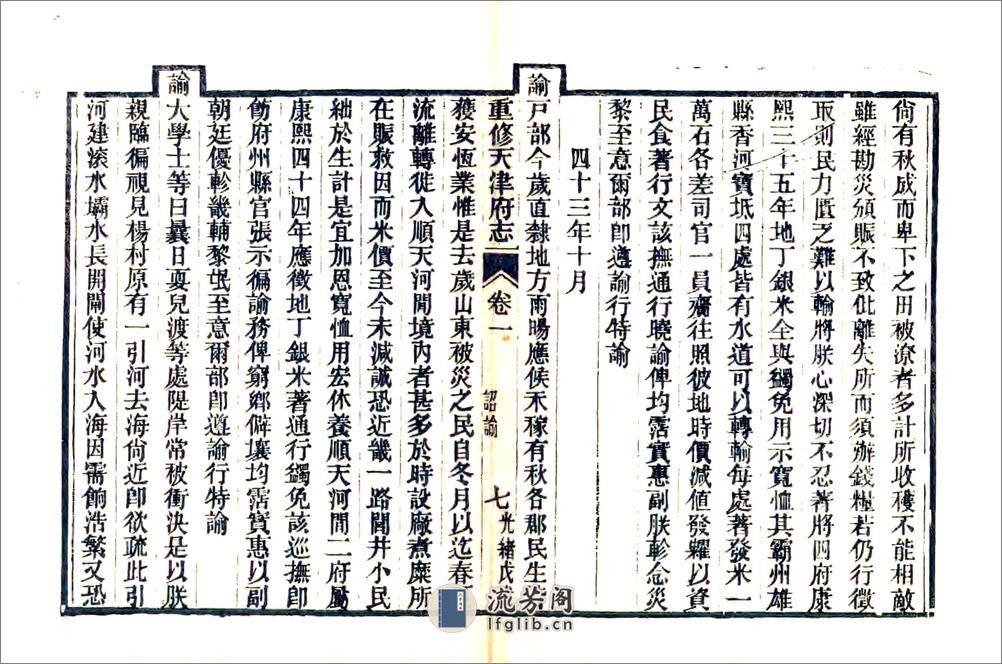 尙有秋成而卑下之田被潦者多計所收穫不能相敵
雖經勘災頒賑不致仳離失所而須辦錢糧若仍行徵
取則民力匱乏難以輸將朕心深切不忍著將四府康
熙三十五年地丁銀米全與蠲免用示寬恤其霸州雄
縣香河寶坻四處皆有水道可以轉輸每處著發米一
萬石各差司官一員齎往照彼地時價減値發糶以資
民食著行文該撫通行曉諭俾均霑實惠副朕軫念災
黎至意爾部卽遵諭行特諭
四十三年十月
諭戸部今歲直隷地方雨暘應候禾稼有秋各郡民生寔
重修天津府志 卷一 詔諭 七 光緒戊
獲安恆業惟是去歲山東被災之民自冬月以迄春
流離轉徙入順天河閒境內者甚多於時設廠煮糜所
在賑救因而米價至今未減誠恐近畿一路閭井小民
絀於生計是宜加恩寬恤用宏休養順天河閒二府屬
康熙四十四年應徵地丁銀米著通行蠲免該巡撫卽
飭府州縣官張示徧諭務俾窮鄉僻壤均霑實惠以副
朝廷優軫畿輔黎氓至意爾部卽遵諭行特諭
諭大學士等曰曩日耍兒渡等處隄岸常被衝決是以朕
親臨徧視見楊村原有一引河去海尙近卽欲疏此引
河建滚水壩水長開閘使河水入海因需餉浩繁又恐
流芳阁
lfglib.cn